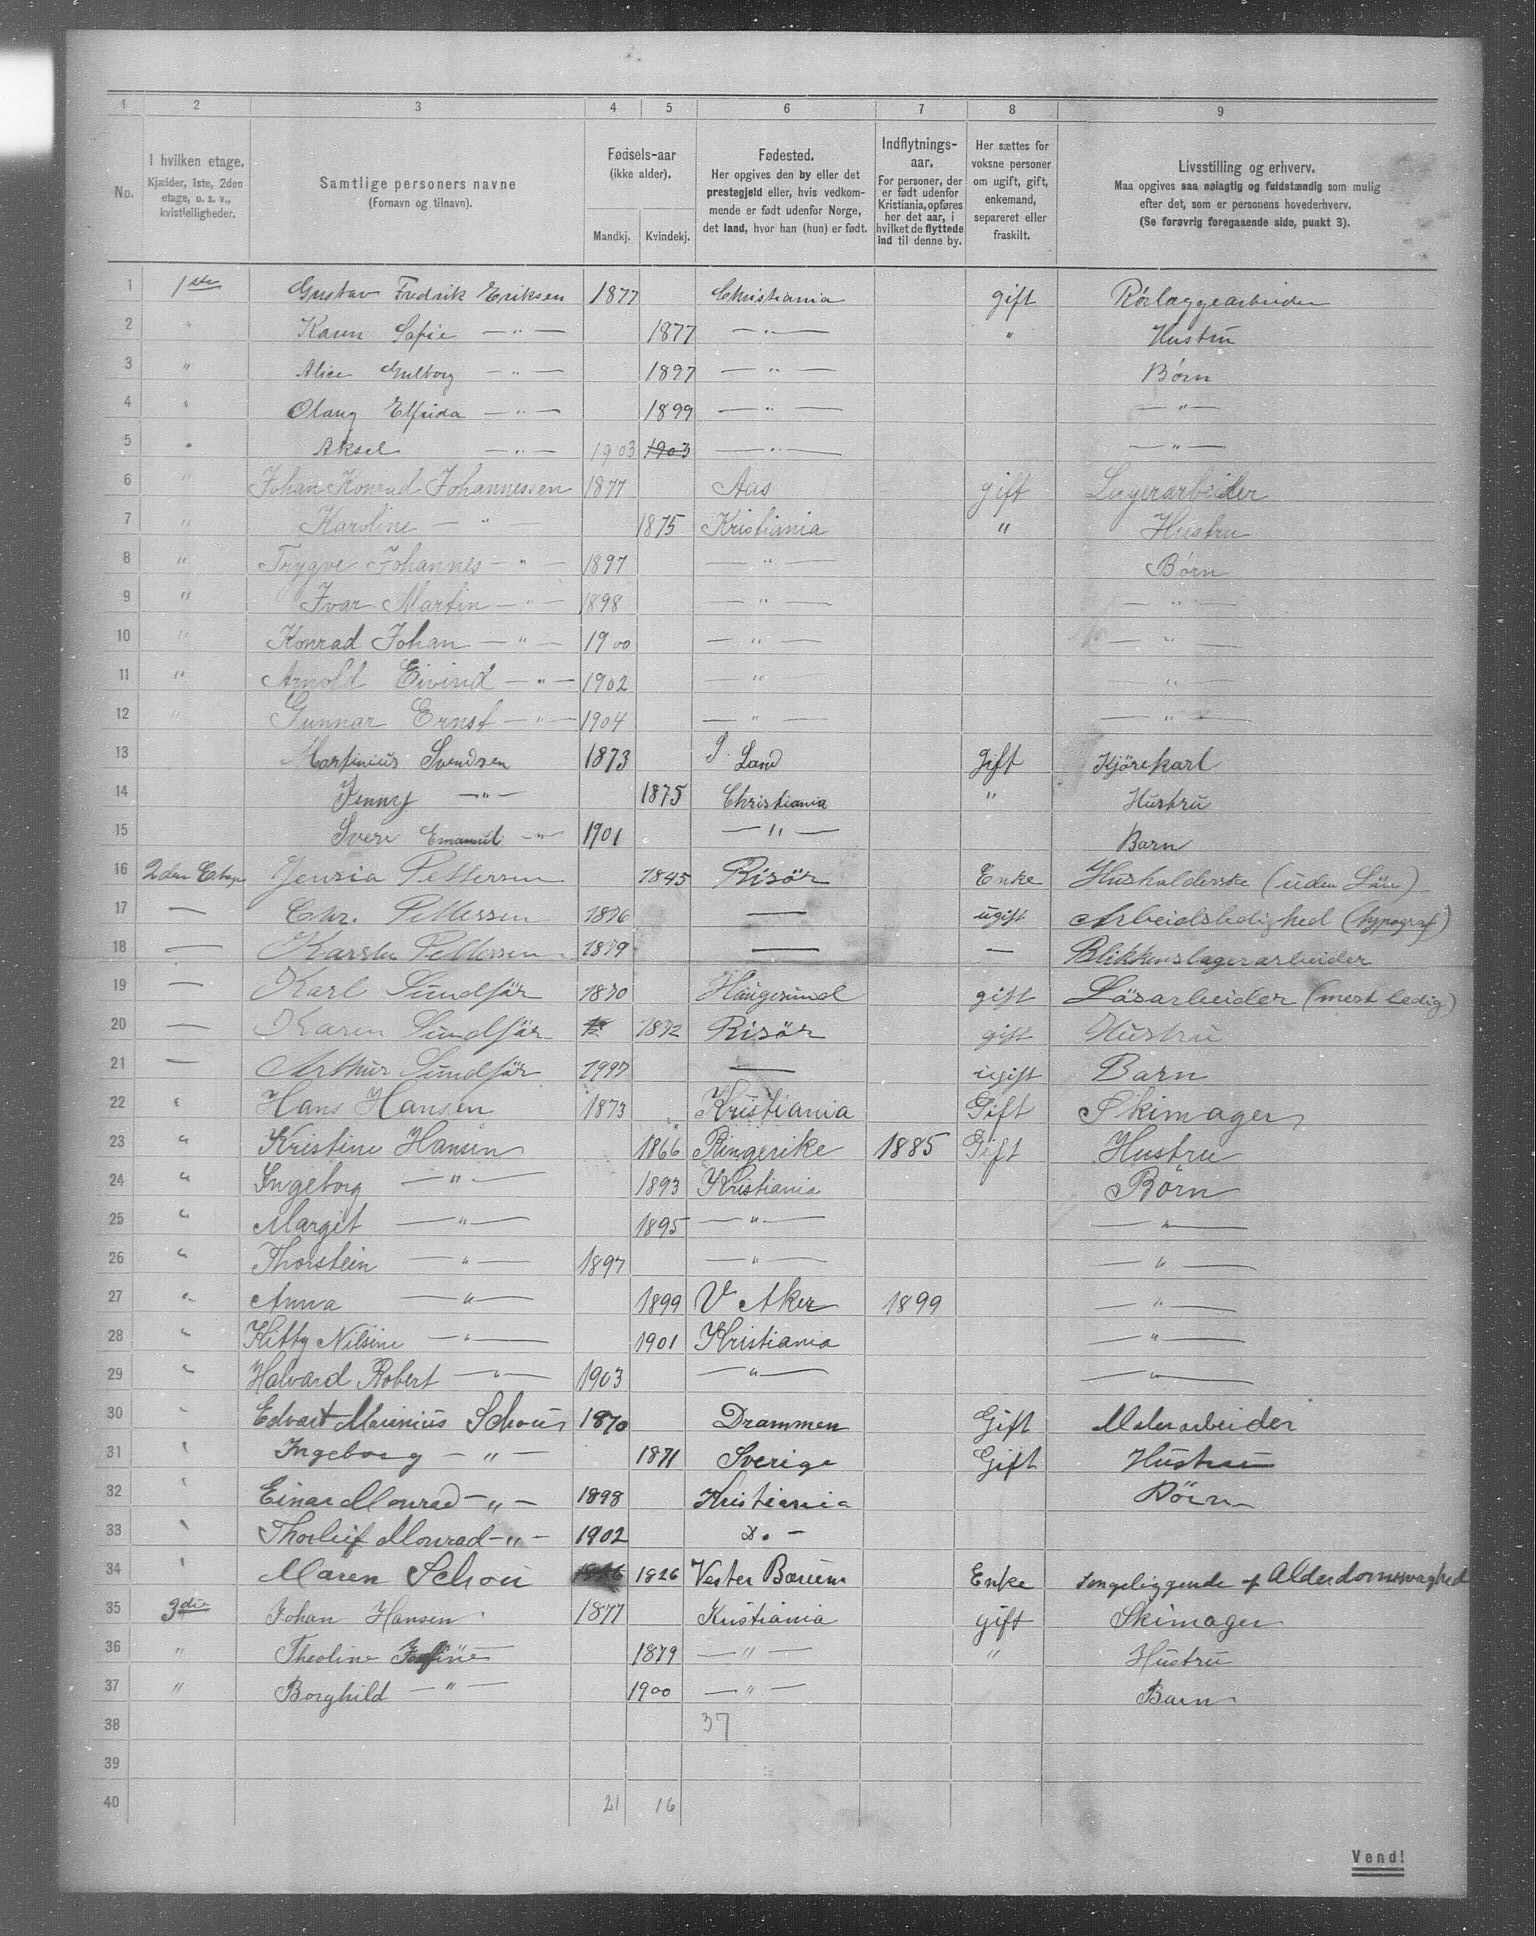 1 2 3 4 5 6 7 8 9
No. I hvilken etage. Kjælder, 1ste, 2den etage, o. s. v., kvistleiligheder. Samtlige personers navne (Fornavn og tilnavn). Fødsels-aar (ikke alder). Mandkj. Kvindekj. Fødested. Her opgives den by eller det prestegjeld eller, hvis vedkommende er født udenfor Norge, det land, hvor han (hun) er født. Indflytnings-aar. For personer, der er født udenfor Kristiania, opføres her det aar, i hvilket de flyttede ind til denne by. Her sættes for voksne personer om ugift, gift, enkemand, separeret eller fraskilt. Livsstilling og erhverv. Maa opgives saa nøiagtig og fuldstændig som mulig efter det, som er personens hovederhverv. (Se forøvrig foregaaende side, punkt 3).
1 1ste Gustav Fredrik Eriksen 1877 Christiania gift Rörlæggearbeider
2 " Karen Sofie — " — 1877 — " — " Hustru
3 " Alice Gulborg — " — 1897 — " — Børn
4 " Olaug Elfrida — " — 1899 — " — — " —
5 " Aksel — " — 1903 1903 — " — — " —
6 " Johan Konrad Johannessen 1877 Aas gift Lagerarbeider
7 " Karoline — " — 1875 Kristiania " Hustru
8 " Trygve Johannes — " — 1897 — " — Børn
9 " Ivar Martin — " — 1898 — " — — " —
10 " Konrad Johan — " — 1900 — " — — " —
11 " Arnold Eivind — " — 1902 — " — — " —
12 " Gunnar Ernst — " — 1904 — " — — " —
13 Martinius Svendsen 1873 S. Land Gift Kjörekarl
14 Jenny — " — 1875 Christiania " Hustru
15 Svere Emanuel — " — 1901 — " — Barn
16 2den Etage Jensia Pettersen 1845 Risör Enke Husholderske (uden Lön)
17 — Chr. Pettersen 1876 — ugift Arbeidsledighed (typograf)
18 — Karsten Pettersen 1879 — — Blikkenslagerarbeider
19 — Karl Sundfjär 1870 Haugesund gift Läsarbeider (mest ledig)
20 — Karen Sundfjär 1872 Risör gift Hustru
21 — Arthur Sundfjär 1997 — ugift Barn
22 " Hans Hansen 1873 Kristiania Gift Skimager
23 " Kristine Hansen 1866 Ringerike 1885 Gift Hustru
24 " Ingeborg — " — 1893 Kristiania Børn
25 " Margit — " — 1895 — " — — " —
26 " Thorstein — " — 1897 — " — — " —
27 " Anna — " — 1899 V Aker 1899 — " —
28 " Kitty Nilsine — " — 1901 Kristiania — " —
29 " Halvard Robert — " — 1903 — " — — " —
30 " Edvart Marinius Schou 1870 Drammen Gift Malerarbeider
31 " Ingeborg — " — 1871 Sverige Gift Hustru
32 " Einar Monrad — " — 1898 Kristiania Børn
33 " Thorleif Monrad — " — 1902 Do. —
34 " Maren Schou 1826 Vester Bærum Enke Sengeliggende af Alderdomsvaghed
35 3die Johan Hansen 1877 Kristiania gift Skimager
36 " Theoline — 1879 — " — " Hustru
37 " Borghild — " — 1900 — " — Barn
38 37
39
40 21 16
Vend!